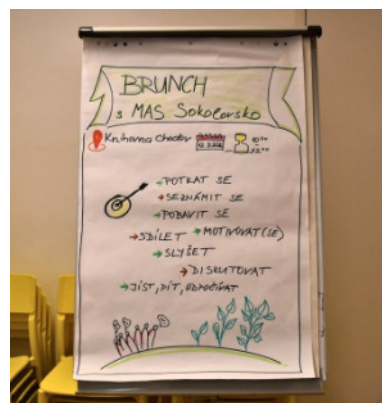 BRUNCH
s MAS Sokolovsko
Knihovna Chodov
→POTKAT SE
→SEZNÁMIT SE
→POBAVIT SE
→SDÍLET →MOTIVOVAT(SE)
→SLYŠET
→DISKUTOVAT
→JÍST, PÍT, ODPOČÍVAT